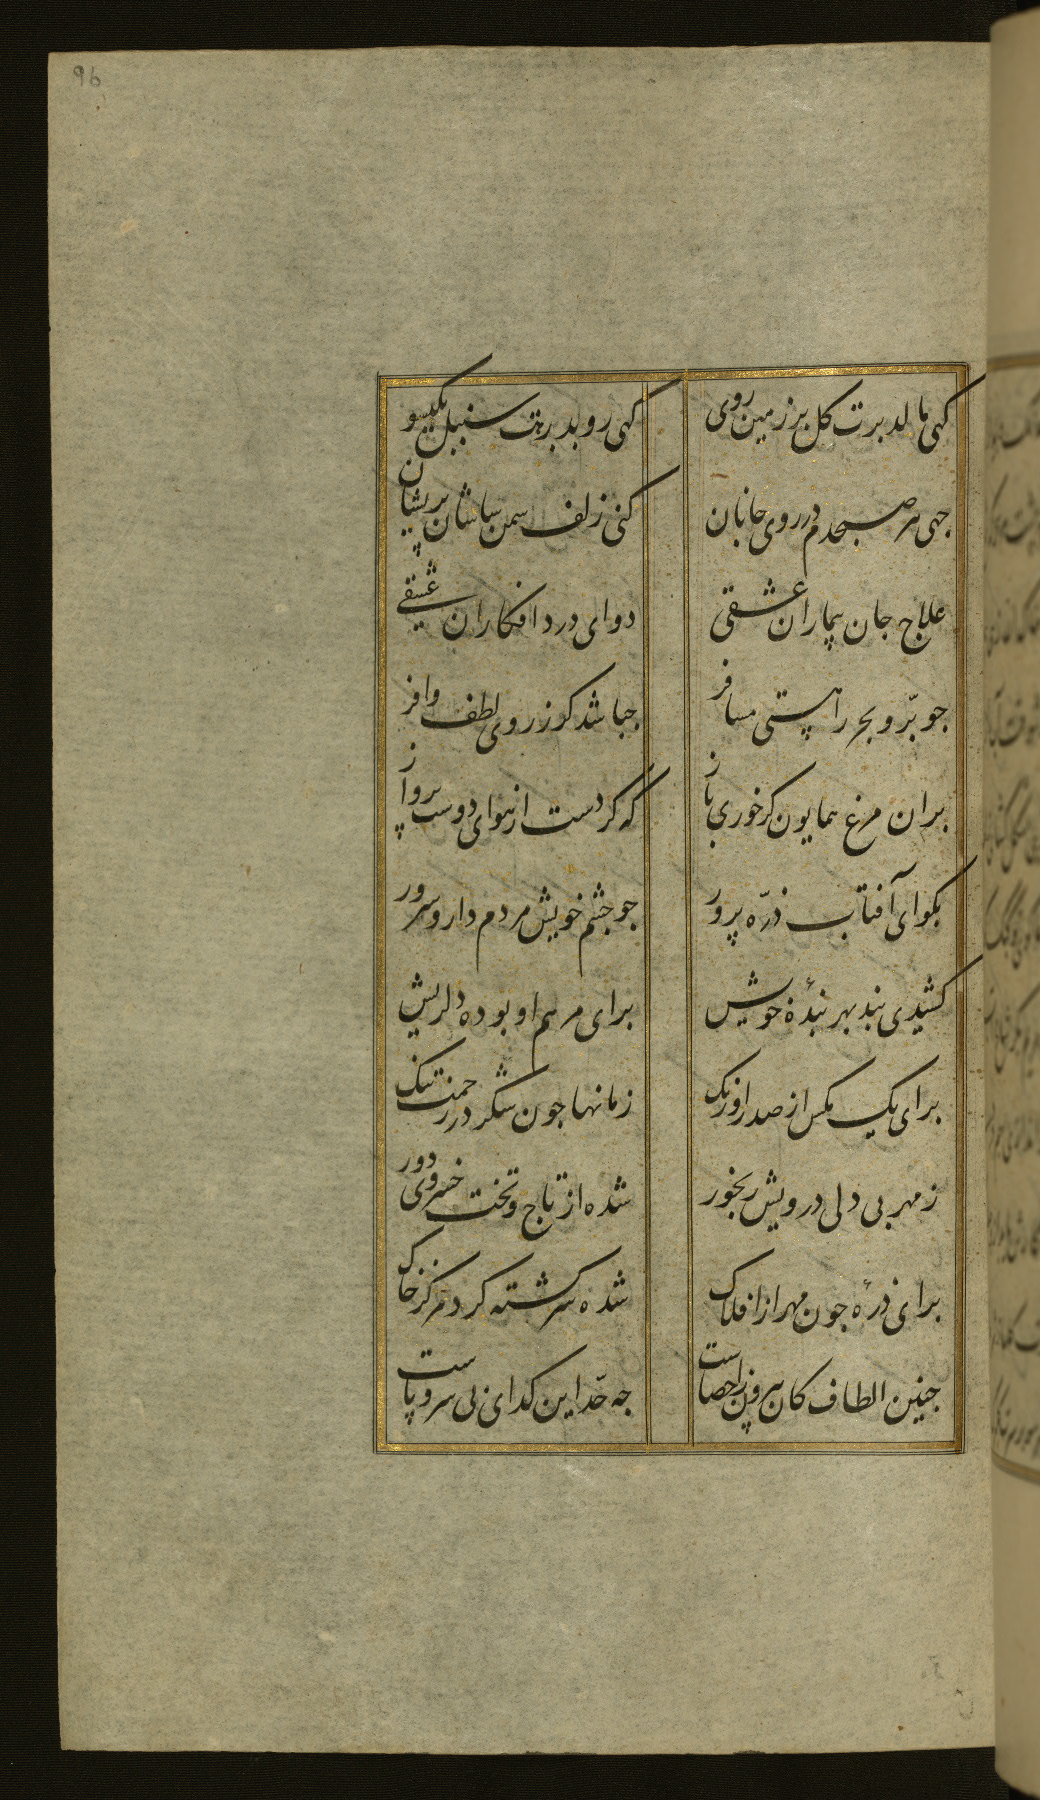 96
کهی مالد برت کل بر زمین روی
کهی روبد برهت سنبل بکیسو
جهی هر صبحدم در روی جانان
کنی زلف سمن سایشان پریشان
علاج جان بیماران عشقی
دوای درد افکاران عشقی
جو بر و بحر را هستی مسافر
جباشد کوز روی لطف وافر
بران مرغ همایون کر خوری باز
که کردست از هوای دوست پرواز
بکو ای آفتاب ذره پرور
جو جشم خویش مردم دار و سرور
کشیدی بند بهر بندهٔ خویش
برای مرهم او بوده دلریش
برای یک مکس از صد اورنک
زمانها جون شکر در زحمت تنک
ز مهر بی دلی درویش رنجور
شده از تاج و تخت خسروی دور
برای ذرهٔ جون مهر از افلاک
شده سرکشته کرد مرکز خاک
جنین الطاف کان بیرون ز احصاست
جه حد این کدای بی سر و پاست